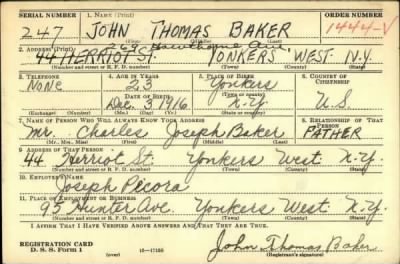 SERIAL NUMBER 1. NAME (Print) ORDER NUMBER
247 JOHN THOMAS BAKER 1444-V
(First) (Middle) (Last)
269 Hawthorne Ave.
2. ADDRESS (Print)
44 HERRIOT ST. YONKERS WEST. N.Y.
(Number and street or R. F. D. number) (Town) (County) (State)
3. TELEPHONE 4. AGE IN YEARS 5. PLACE OF BIRTH 6. COUNTRY OF CITIZENSHIP
None 23 Yonkers
DATE OF BIRTH (Town or county)
Dec. 3 1916 N.Y. U.S.
(Exchange) (Number) (Mo.) (Day) (Yr.) (State or country)
7. NAME OF PERSON WHO WILL ALWAYS KNOW YOUR ADDRESS 8. RELATIONSHIP OF THAT PERSON
Mr. Charles Joseph Baker FATHER
(Mr., Mrs., Miss) (First) (Middle) (Last)
9. ADDRESS OF THAT PERSON
44 Herriot St. Yonkers West. N.Y.
(Number and street or R. F. D. number) (Town) (County) (State)
10. EMPLOYER'S NAME
Joseph Pecora
11. PLACE OF EMPLOYMENT OR BUSINESS
95 Hunter Ave. Yonkers West. N.Y.
(Number and street or R. F. D. number) (Town) (County) (State)
I AFFIRM THAT I HAVE VERIFIED ABOVE ANSWERS AND THAT THEY ARE TRUE.
REGISTRATION CARD
D. S. S. Form 1 (over) John Thomas Baker
(Registrant's signature)